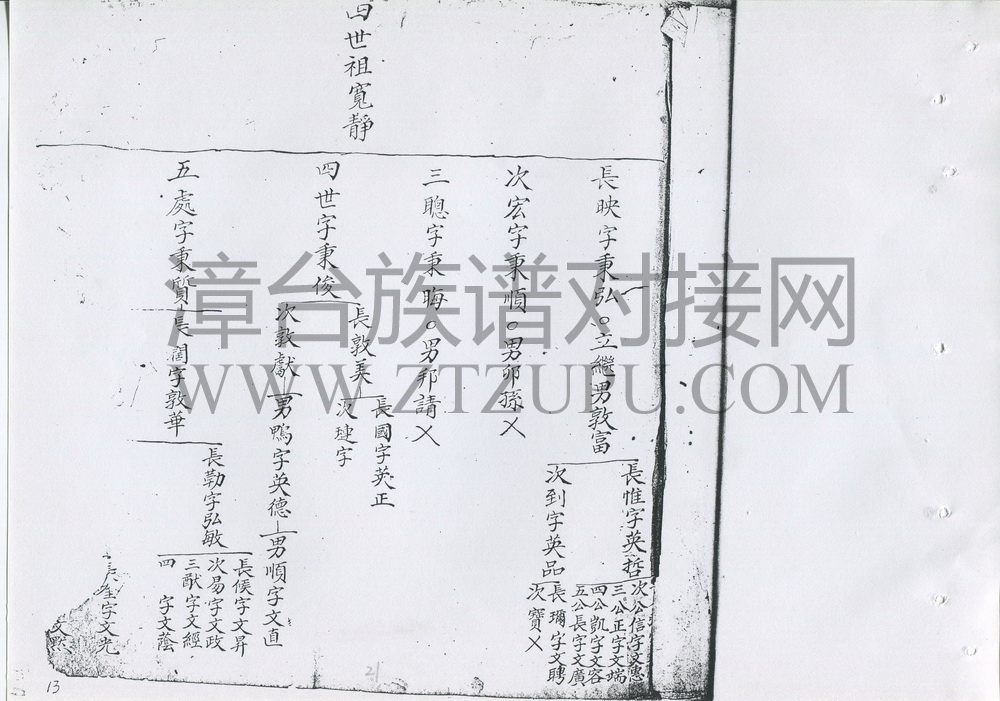 四世祖寬靜
長映字秉弘。立繼男敦富
長惟字英哲
次公信字文憲
三公正字文端
四公凱字文容
五公長字文廣
次到字英品
長瓊字文聘
次寶㐅
次宏字秉順。男卯孫㐅
三聰字秉晦。男邦請㐅
四世字秉俊
長敦美
長國字英正
次 字
次敦獻
男鴨字英德
男順字文直
五處字秉質
長 字敦華
長勒字弘敏
長侯字文昇
次易字文政
三猷字文經
四 字文蔭
長 字文光
文熙
章台族谱对接网
WWW.ZTZUPU.COM
13